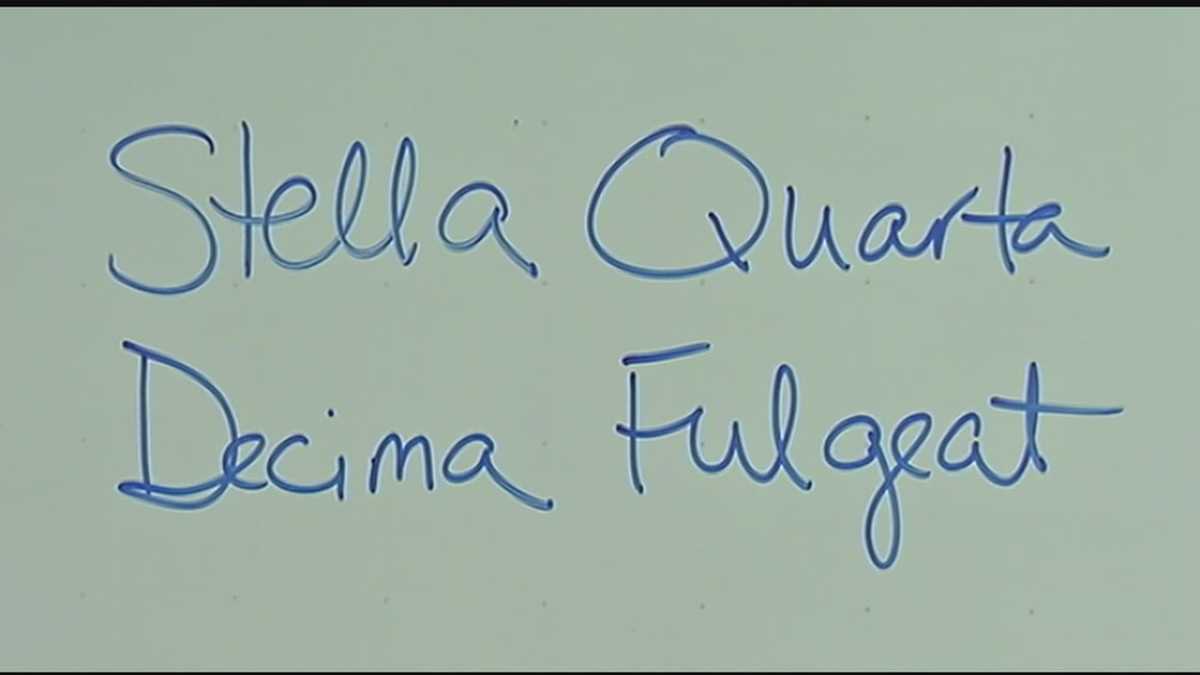 Stella Quarta
Decima Fulgeat